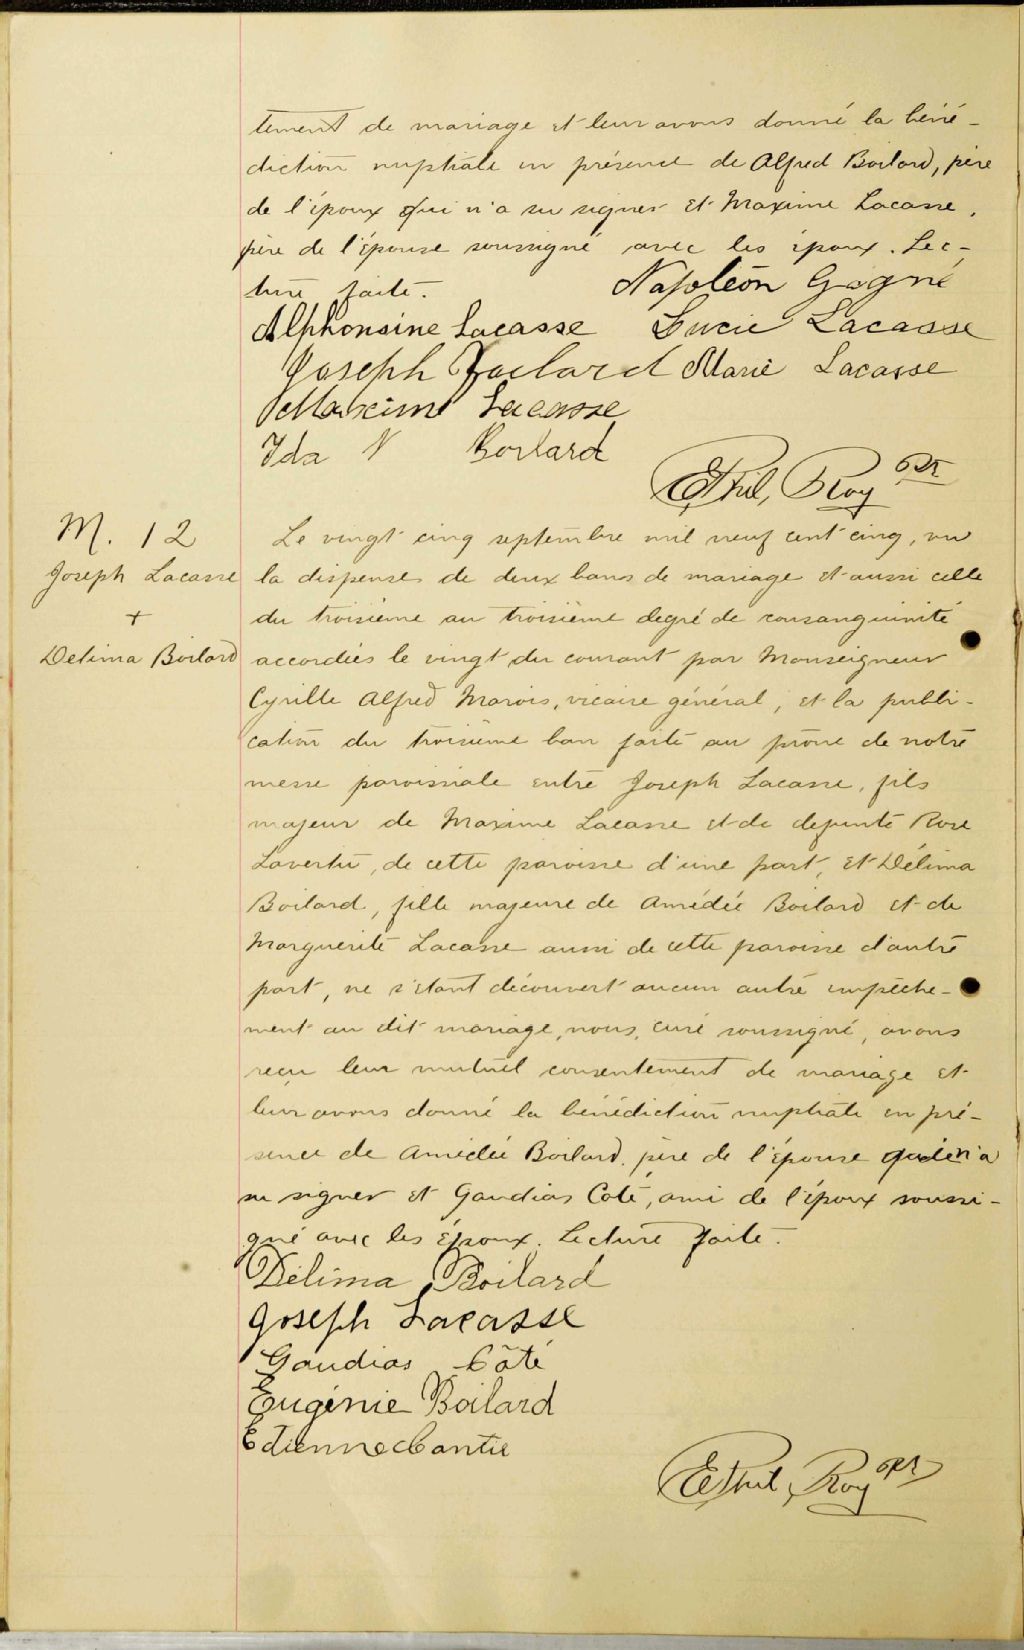 tement de mariage et leur avons donné la béné-
diction nuptiale en présence de Alfred Boilard, père
de l'époux qui n'a su signer et Maxime Lacasse,
père de l'épouse soussigné avec les époux. Lec-
ture faite.
Napoléon Gagné
Alphonsine Lacasse Lucie Lacasse
Joseph Boilard Marie Lacasse
Maxime Lacasse
Ida N Boilard
Phil, Roy ptr
M. 12
Joseph Lacasse
+
Delima Boilard
Le vingt cinq septembre mil neuf cent cinq, vu
la dispense de deux bans de mariage et aussi celle
du troisième au troisième degré de consanguinité
accordées le vingt du courant par Monseigneur
Cyrille Alfred Marois, vicaire général, et la publi-
cation du troisième ban faite au prône de notre
messe paroissiale entre Joseph Lacasse, fils
majeur de Maxime Lacasse et de defunte Rose
Lavertu, de cette paroisse d'une part, et Délima
Boilard, fille majeure de Amédée Boilard et de
Marguerite Lacasse aussi de cette paroisse d'autre
part, ne s'étant découvert aucun autre empêche-
ment au dit mariage, nous, curé soussigné, avons
reçu leur mutuel consentement de mariage et
leur avons donné la bénédiction nuptiale en pré-
sence de Amédée Boilard, père de l'épouse qui n'a
su signer et Gaudias Coté, ami de l'époux soussi-
gné avec les époux. Lecture faite.
Délima Boilard
Joseph Lacasse
Gaudias Côté
Eugénie Boilard
Etienne
Phil, Roy ptr